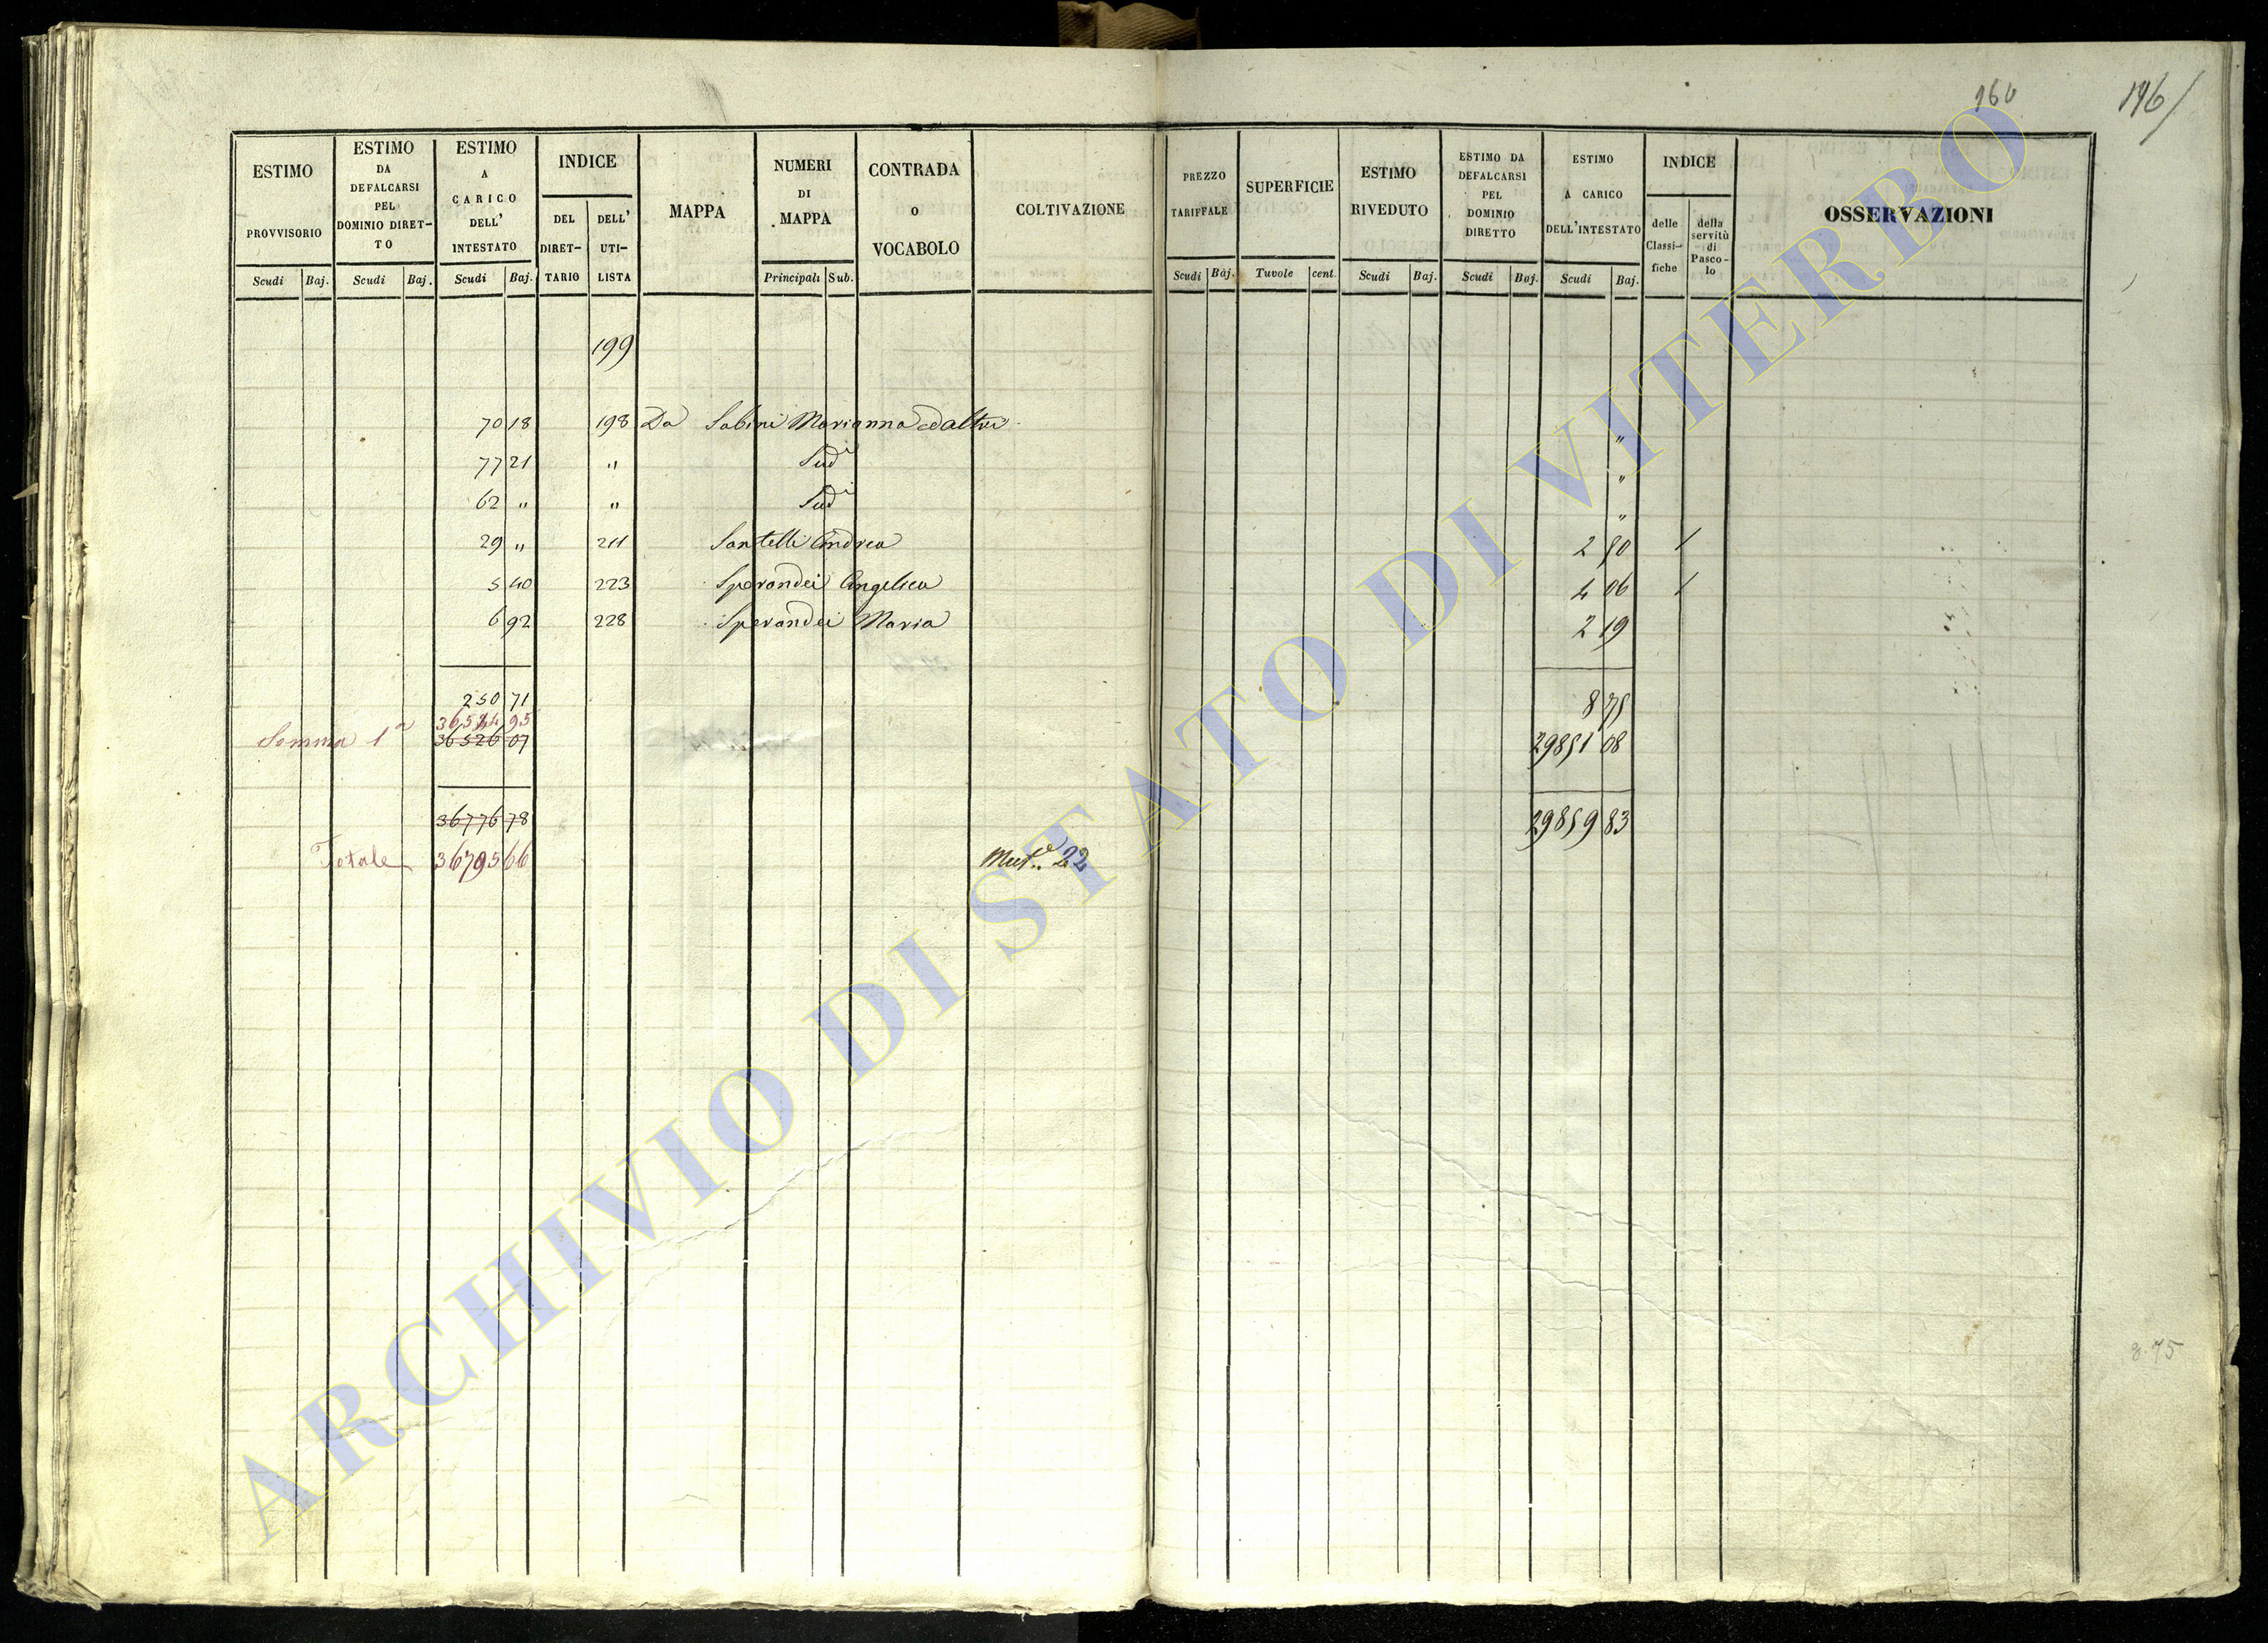 160 146/
ESTIMO PROVVISORIO Scudi Baj.
ESTIMO DA DEFALCARSI PEL DOMINIO DIRET-TO Scudi Baj.
ESTIMO A CARICO DELL' INTESTATO Scudi Baj.
INDICE DEL DIRET-TARIO DELL' UTI-LISTA
MAPPA
NUMERI DI MAPPA Principali Sub.
CONTRADA O VOCABOLO
COLTIVAZIONE
PREZZO TARIFFALE Scudi Baj.
SUPERFICIE Tavole cent.
ESTIMO RIVEDUTO Scudi Baj.
ESTIMO DA DEFALCARSI PEL DOMINIO DIRETTO Scudi Baj.
ESTIMO A CARICO DELL'INTESTATO Scudi Baj.
INDICE delle Classi-fiche della servitù di Pasco-lo
OSSERVAZIONI
199
70 18 198 Da Sabini Marianna ed altri "
77 21 " Sudi "
62 " " Sudi "
29 " 211 Santelli Andrea 2 50 1
5 40 223 Sperandei Angelica 4 06 1
6 92 228 Sperandei Maria 2 19
250 71 8 75
36544 95
Somma 1a 36526 07 29851 08
36776 78 29859 83
Totale 36795 66 22
8.75
ARCHIVIO DI STATO DI VITERBO